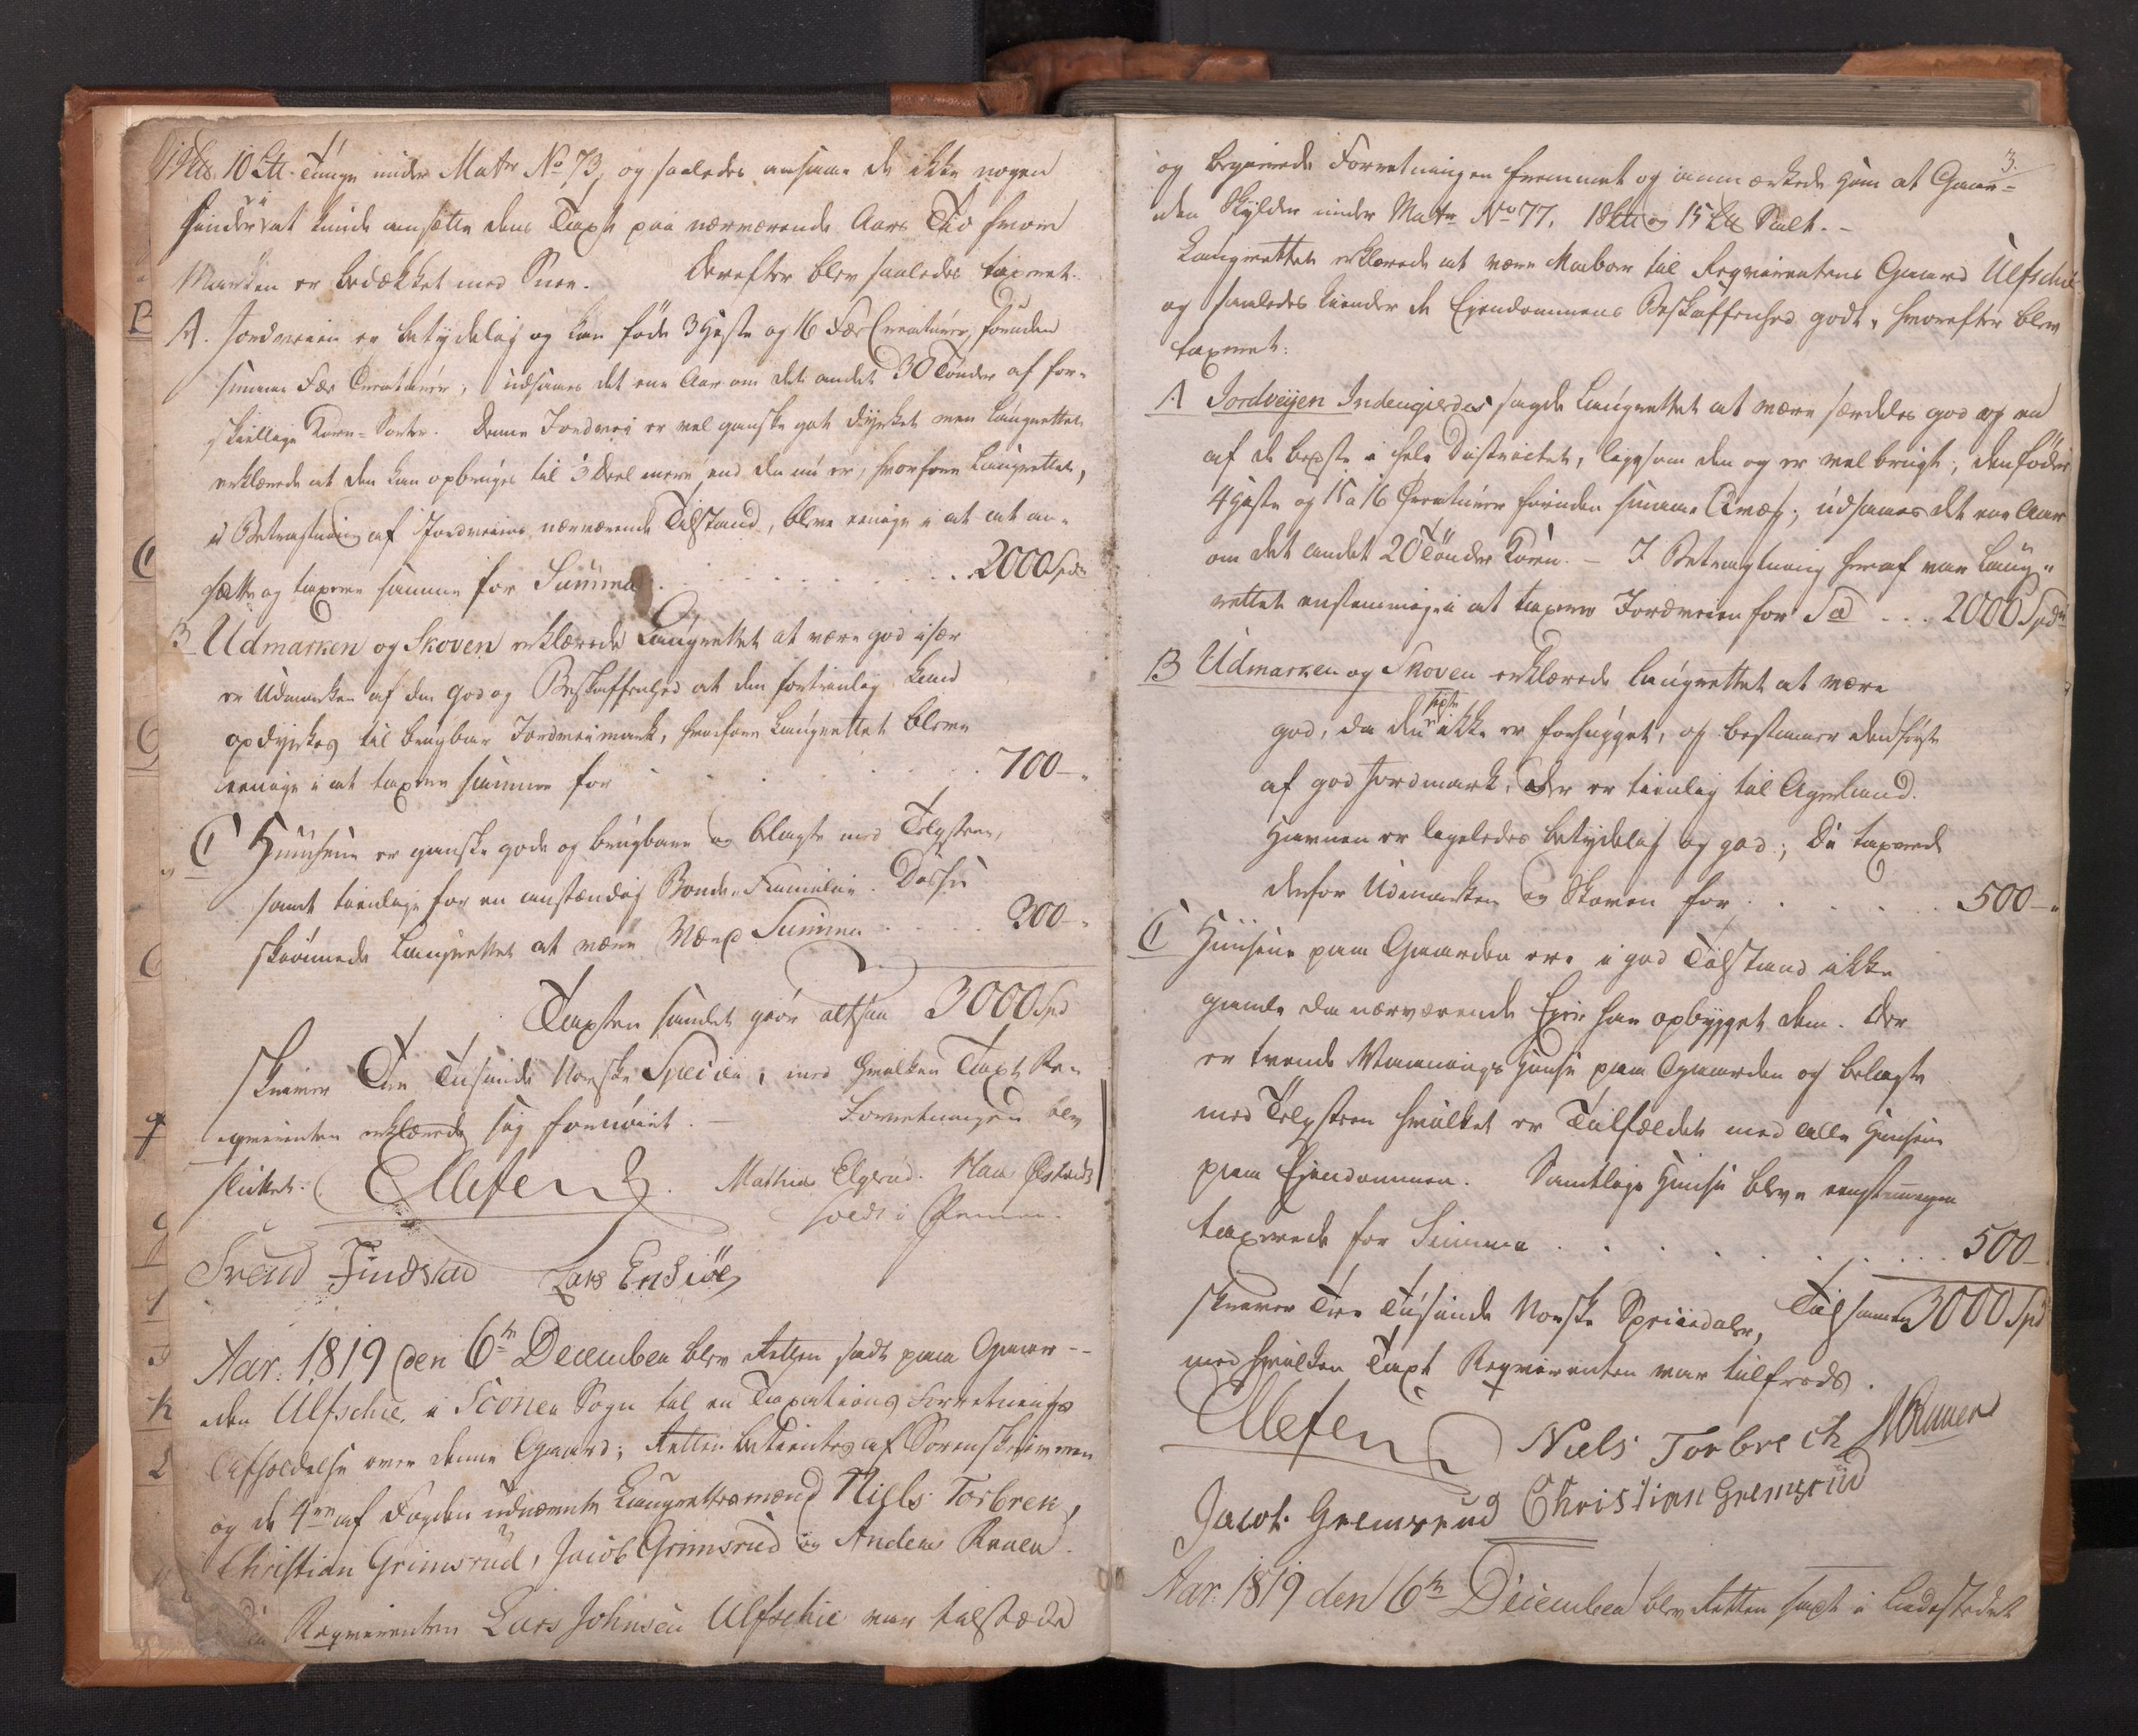 10 Lb. Tunge under Matr No 73, og saaledes ansaae de ikke nogen
hinder i at kunde ansætte dens Taxt paa nærværende Aars Tid hvor
Marken er bedækket med Snee. Derefter blev saaledes taxeret.
A. Jordveien er betydelig og kan föde 3 Heste og 16 Fæe Creaturer, foruden
smaae Fæe Creaturer, udsaaes det ene Aar om det andet 30 Tönder af for-
skiellige Korn-Sorter. Denne Jordvei er vel ganske got dyrket men Laugrettet
erklærede at den kan opbruges til 3 Deel mere end den nu er, hvorfore Laugrettet,
i Betragtning af Jordveiens nærværende Tilstand, bleve eenige i at an-
sætte og taxere samme for Summa . . . 2000 Spd
B Udmarken og Skoven erklærede Laugrettet at være god især
er Udmarken af den god og Beskaffenhed at den fortrinlig kand
opdyrkes til brugbar Jordveimark, hvorfore Laugrettet bleve
eenige i at taxere samme for . . . 700 -
C Huusene er ganske gode og brugbare og belagte med Tegsteen,
samt tienlige for en anstændig Bonde-Familie. Disse
skiönnede Laugrettet at være Værd Summa . . . 300 -
Taxten samlet giör altsaa 3000 Spd
skriver Tre Tusinde Norske Specier, med hvilken Taxt Re-
qvirenten erklærede sig fornöiet. - Forretningen blev
sluttet. Ellefen Mathias Elgerud. Hans Ølstad
holdt i Pennen.
Svend Findstad Lars Endsiöe
Aar: 1819 den 6te December blev Retten sadt paa Gaar-
den Ulfschie i Soones Sogn til en Taxations Forretnings
Afholdelse over denne Gaard; Retten betientes af Sorenskriveren
og de 4re af Fogden udnævnte Laugrettesmænd Niels Torbrek,
Christian Grimsrud, Jacob Grimsrud og Anders Ruen.
Reqvirenten Lars Johnsen Ulfschie var tilstæde
3.
og begierede Forretningen fremmet og anmærkede ham at Gaar-
den skylder under Matr No 77. 1 og 15 Salt. -
Laugrettet erklærede at være Naboer til Reqvirentens Gaard Ulfschie
og saaledes kiender de Eiendommens Beskaffenhed godt, hvorefter blev
taxeret:
A Jordveyen Indengierdes sagde Laugrettet at være særdeles god og en
af de beste i hele Districtet, ligesom den og er vel brugt; den föder
4 Heste og 15 a 16 Creaturer foruden smaae Qvæg; udsaaes det ene Aar
om det andet 20 Tönder Korn. - I Betragtning heraf var Laug-
rettet eenstemmige i at taxere Jordveien for Sa . . . 2000 Spd
B Udmarken og Skoven erklærede Laugrettet at være
god, da den ikke er forhugget, og bestaaer
af god Jordmark, der er tienlig til Agerland.
Havnen er ligeledes betydelig og god; De taxerede
derfor Udmarken og Skoven for . . . 500 -
C Huusene paa Gaarden ere i god Tilstand ikke
gamle da nærværende Eier har opbygget dem. Der
er tvende Vaanings Huuse paa Gaarden og belagte
med Tegsteen hvilket er Tilfældet med alle Huusene
paa Eiendommen. Samtlige Huuse bleve eenstemmigen
taxerede for Summa . . . 500 -
Tilsammen 3000 Spd
skriver Tre Tusinde Norske Speciedaler,
med hvilken Taxt Reqvirenten var tilfreds.
Ellefen Niels Torbrech
Jacob Gremsrud Christian Gremsrud
Aar 1819 den 6te December blev Retten sadt i Ladestedet